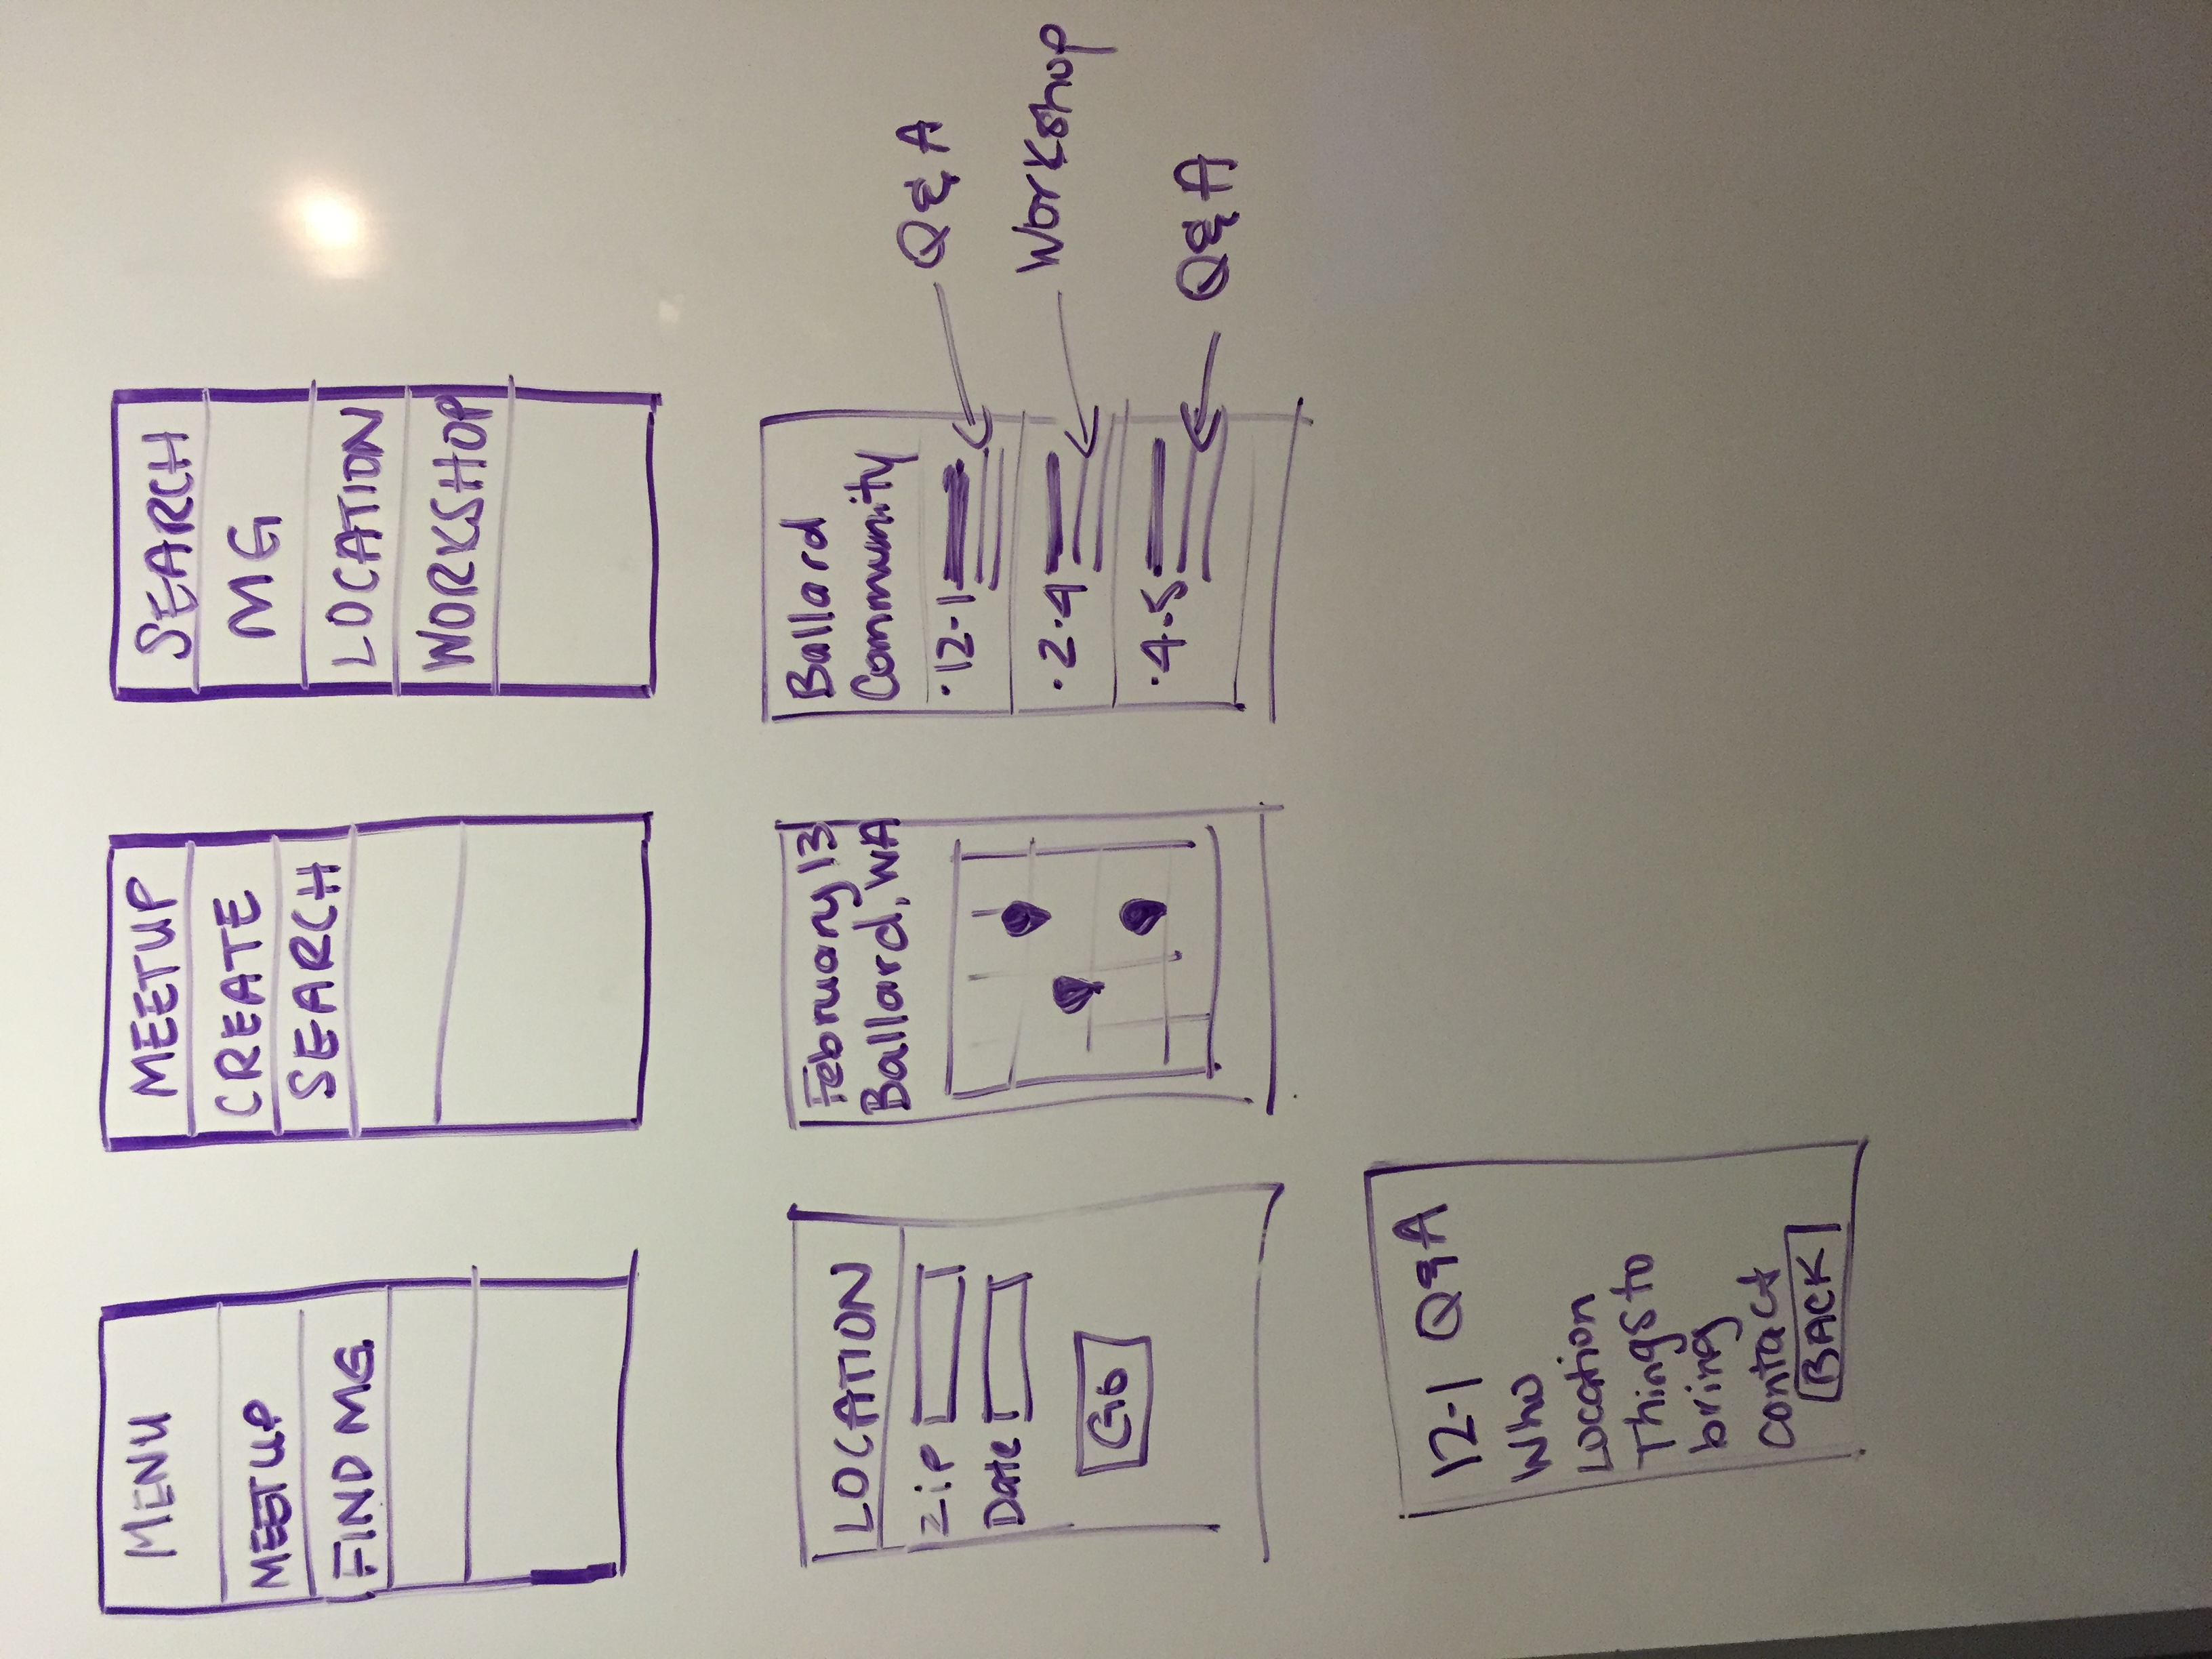 MENU
MEETUP
FIND MG
MEETUP
CREATE
SEARCH
SEARCH
MG
LOCATION
WORKSHOP
LOCATION
Zip
Date
GO
February 13
Ballard, WA
Ballard
Community
·12-1
Q&A
·2-4
Workshop
·4-5
Q&A
12-1 Q&A
Who
Location
Things to
bring
Contact
BACK